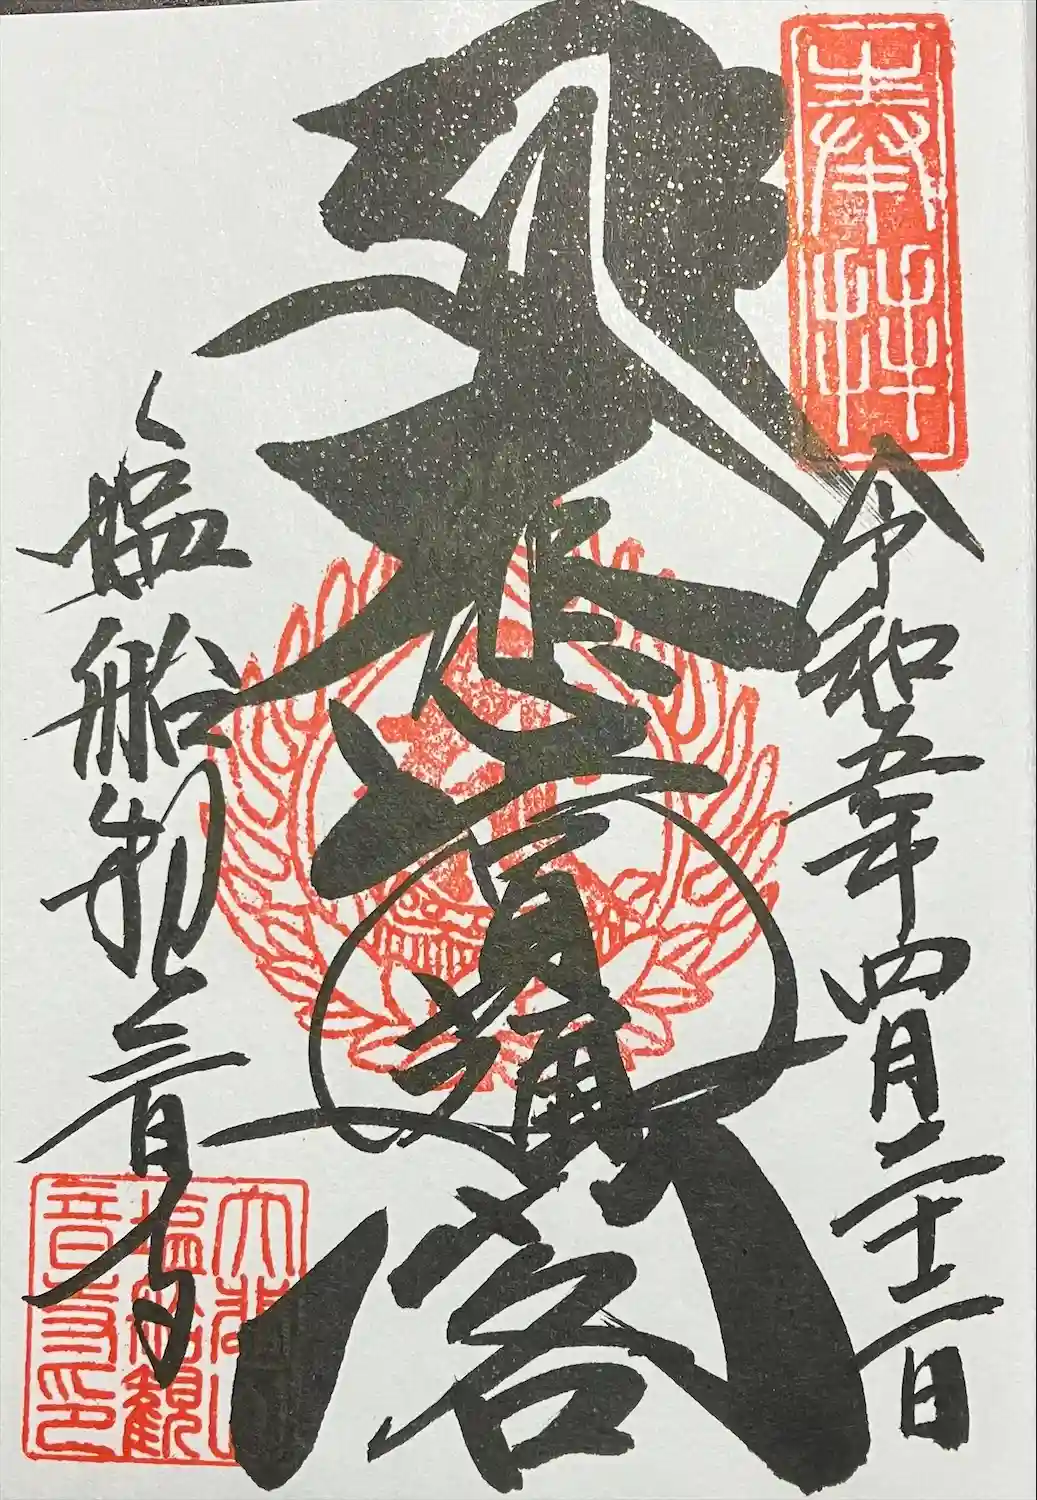 奉拝
令和五年四月二十二日
大悲
閣
塩船観音寺
大悲山
塩船観
音寺印